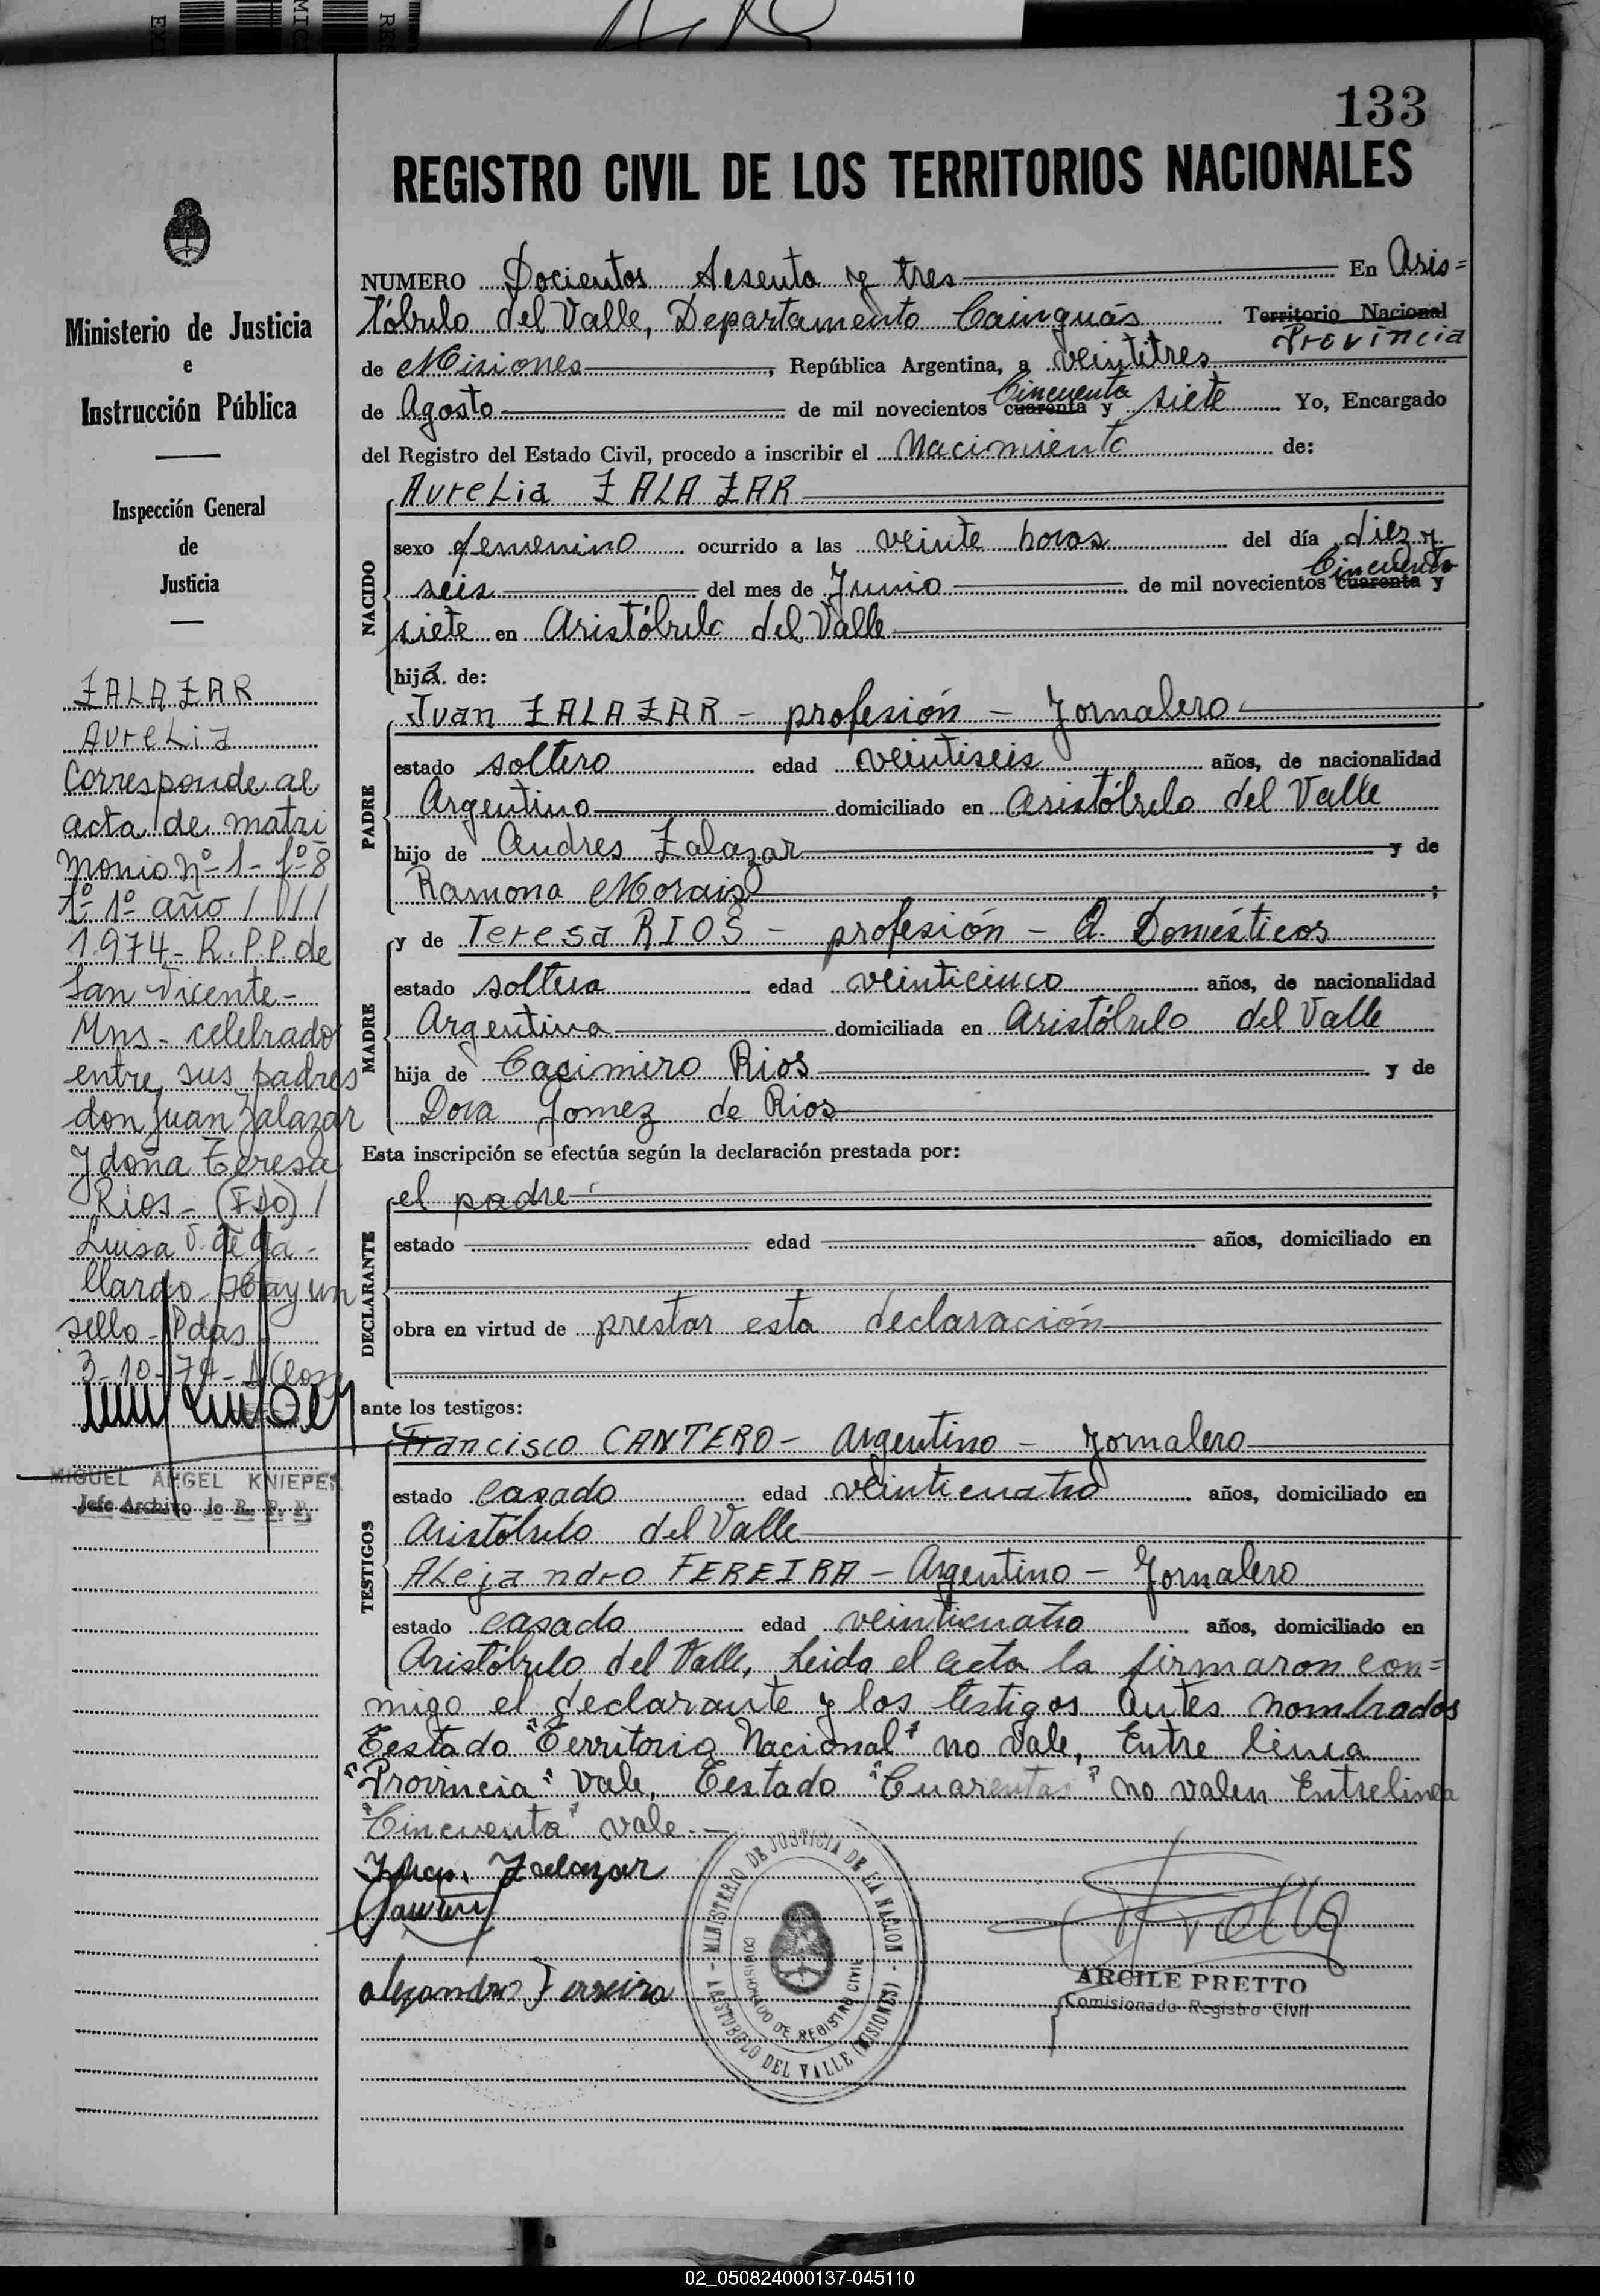 133
REGISTRO CIVIL DE LOS TERRITORIOS NACIONALES
Ministerio de Justicia
e
Instrucción Pública
Inspección General
de
Justicia
ZALAZAR
Aurelia
Corresponde al
acta de matri
monio nº 1 - fº 8
Tº 1º año / / / /
1.974 - R.P.P. de
San Vicente -
Mns - celebrado
entre sus padres
don Juan Zalazar
y doña Teresa
Rios - (Fdo) /
Luisa V. de Ga-
llardo - Hay un
sello - Pdas
3-10-74 -
MIGUEL ANGEL KNIEPER
Jefe Archivo de R. P. P.
NUMERO Docientos Sesenta y tres En Aris=
tóbulo del Valle, Departamento Cainguás Territorio Nacional
Provincia
de Misiones, República Argentina, a veintitres
de Agosto de mil novecientos cuarenta Cincuenta y siete Yo, Encargado
del Registro del Estado Civil, procedo a inscribir el Nacimiento de:
NACIDO
Aurelia ZALAZAR
sexo femenino ocurrido a las veinte horas del día diez y
seis del mes de Junio de mil novecientos cuarenta Cincuenta y
siete en Aristóbulo del Valle
hija de:
PADRE
Juan ZALAZAR - profesión - Jornalero
estado soltero edad veintiseis años, de nacionalidad
Argentino domiciliado en Aristóbulo del Valle
hijo de Andres Zalazar y de
Ramona Morais;
MADRE
y de Teresa RIOS - profesión - Q. Domésticos
estado soltera edad veinticinco años, de nacionalidad
Argentina domiciliada en Aristóbulo del Valle
hija de Cacimiro Rios y de
Dora Gomez de Rios
Esta inscripción se efectúa según la declaración prestada por:
DECLARANTE
el padre
estado edad años, domiciliado en
obra en virtud de prestar esta declaración
ante los testigos:
TESTIGOS
Francisco CANTERO - Argentino - Jornalero
estado casado edad veinticuatro años, domiciliado en
Aristóbulo del Valle
Alejandro FEREIRA - Argentino - Jornalero
estado casado edad veinticuatro años, domiciliado en
Aristóbulo del Valle, Leida el acta la firmaron con=
migo el declarante y los testigos antes nombrados
Testado "Territorio Nacional" no vale, Entre linea
"Provincia" vale, Testado "Cuarentas" no valen Entrelinea
"Cincuenta" vale.-
Juan Zalazar
alejandro Ferreira
MINISTERIO DE JUSTICIA DE LA NACION
COMISIONADO DE REGISTRO CIVIL
ARISTOBULO DEL VALLE (MISIONES)
ARCILE PRETTO
Comisionado Registro Civil
02_050824000137-045110